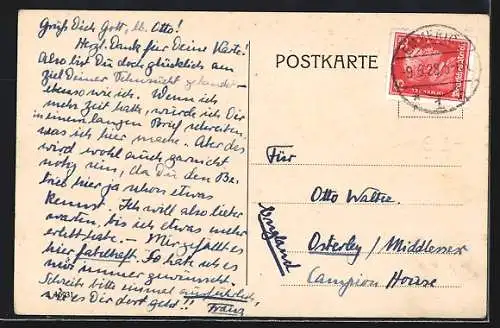 Grüß Dich Gott, lb. Otto!
Herzl. Dank für Deine Karte!
Also bist Du doch glücklich am
Ziel Deiner Sehnsucht gelandet –
ebenso wie ich. Wenn ich
mehr Zeit hätte, würde ich Dir
in einem langen Brief schreiben,
was ich hier mache. Aber das
wird wohl auch garnicht
nötig sein, da Du den Be-
trieb hier ja schon etwas
kennst. Ich will also lieber
warten, bis ich etwas mehr
erlebt habe. – Mir gefällt es
hier fabelhaft. So hab ich es
mir immer gewünscht.
Schreib bitte einmal ausführlich,
wie es Dir dort geht!! Franz
POSTKARTE
Für
Otto
England
Osterley / Middlesex
Campion House